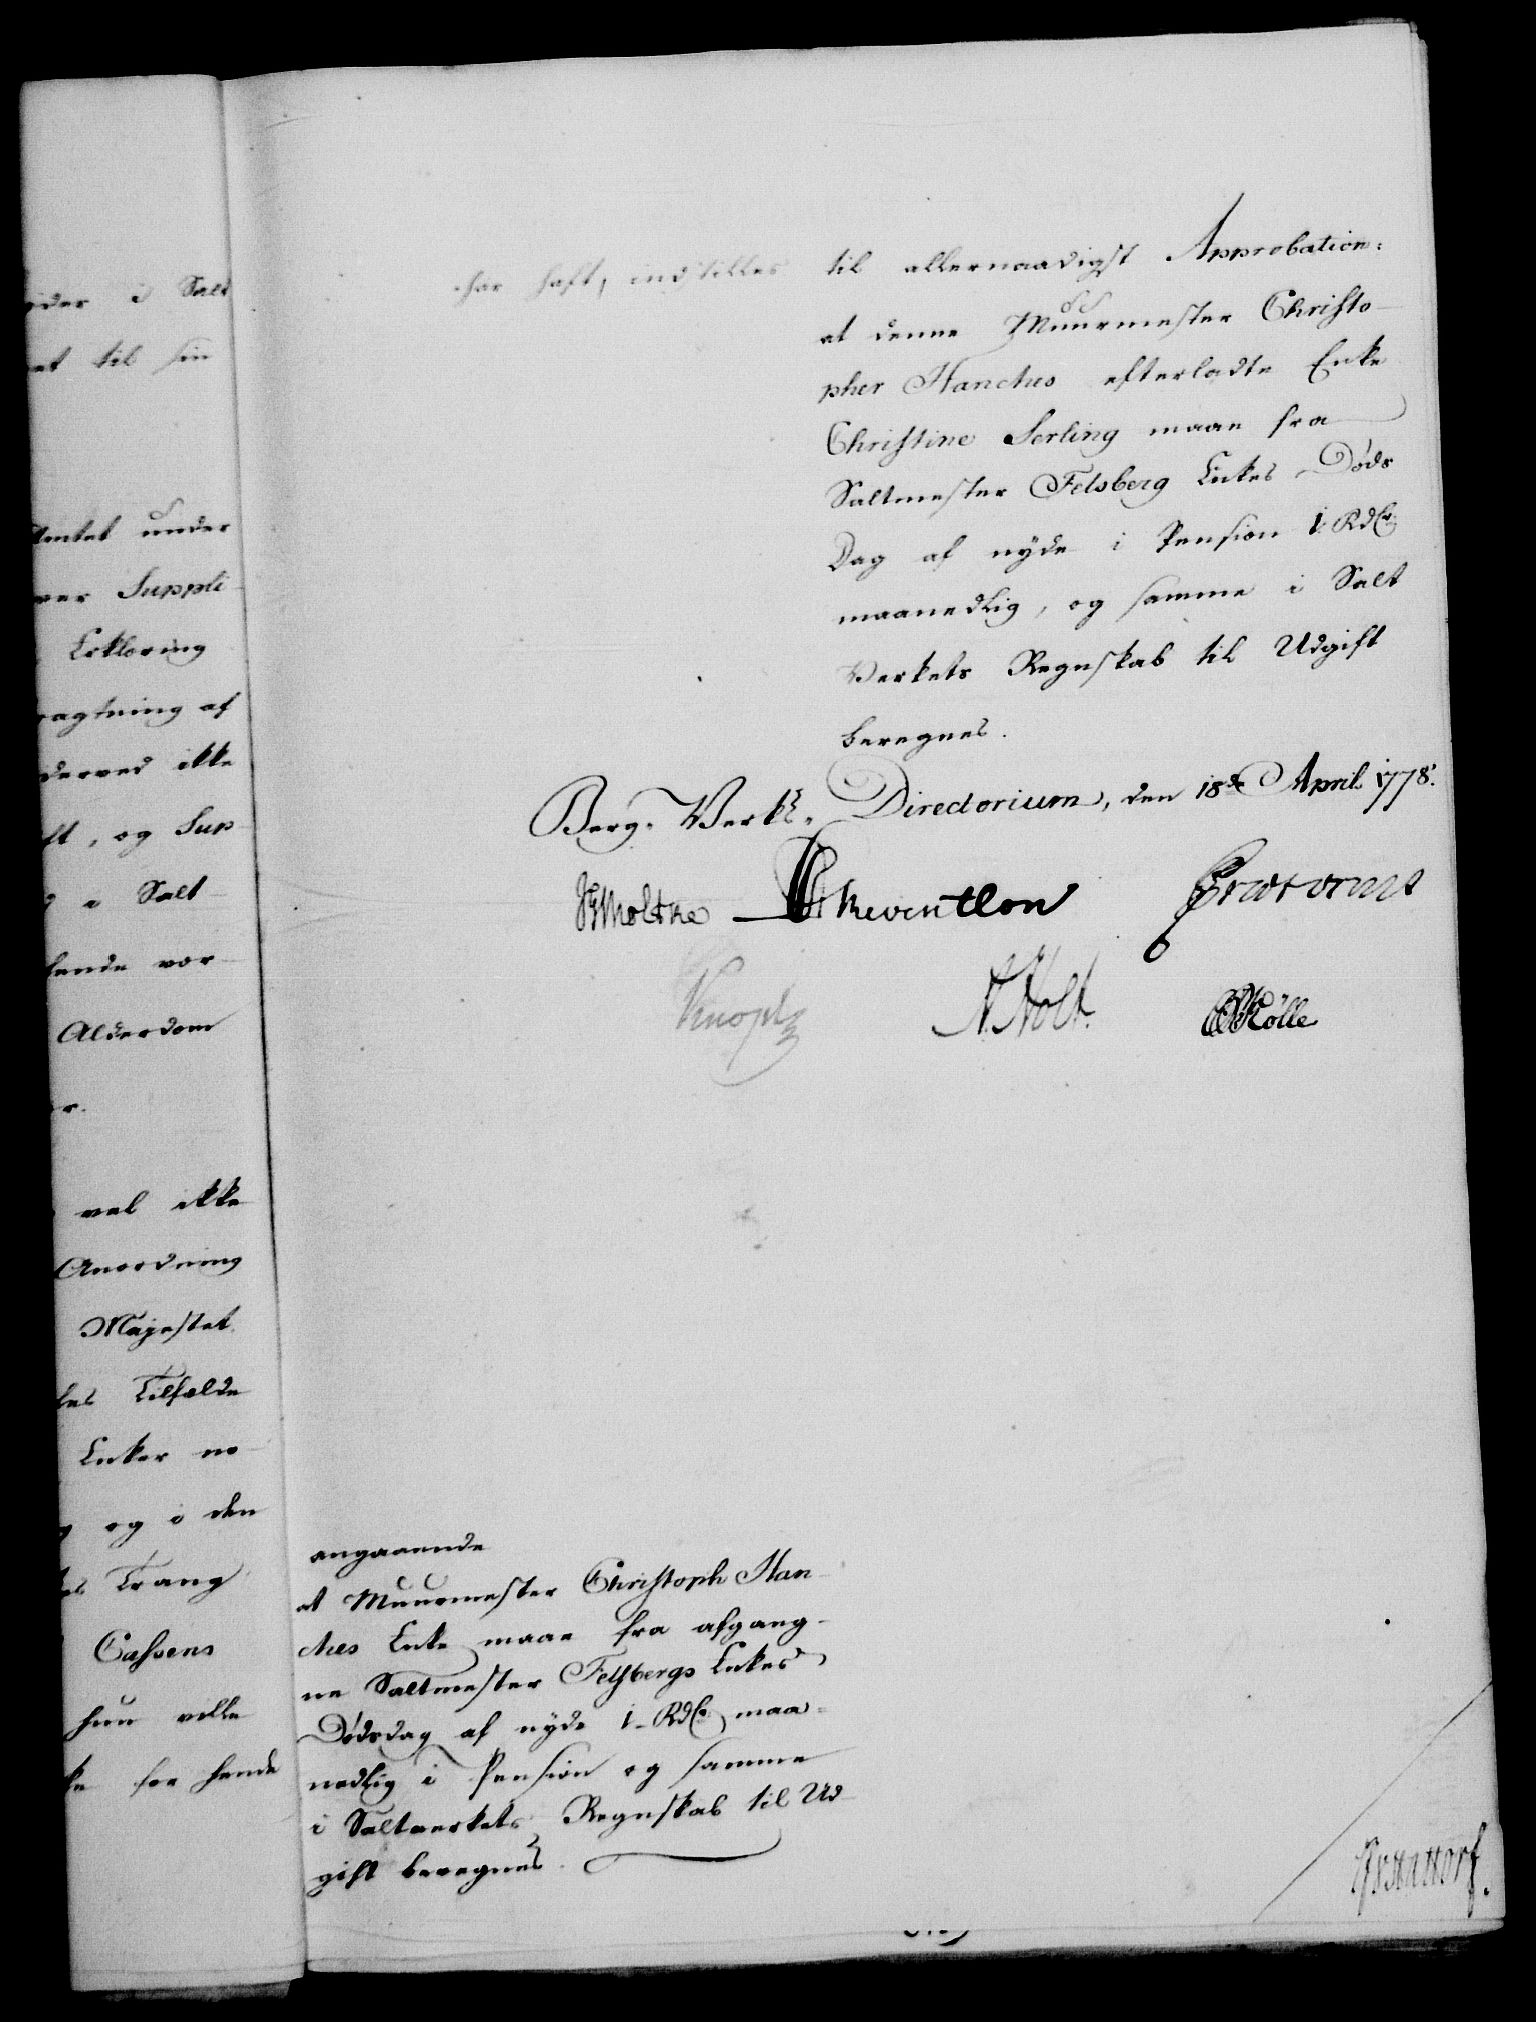 eider i Salt
et til sin
tentet under
ver Suppli-
Erklæring
ragtning af
derved ikke
ft, og Sup-
i Salt
hende vor-
Alderdom
r.
vel ikke
Anordning
Majestet
les Tilfælde
Enker no-
og i den
Trang
Cassens
hun ville
ke for hende
har haft, indstilles til allernaadigst Approbation:
at denne Muurmester Christo-
pher Hanches efterladte Enke
Christine Serling maae fra
Saltmester Felsberg Enkes Døds
Dag af nyde i Pension 1 Rdlr.
maanedlig, og samme i Salt
Verkets Regnskab til Udgift
beregnes.
Berg-Verks-Directorium, den 18de April 1778.
JGMoltke Reventlou Prætorius
Knoph N. Holt. Kølle
angaaende
at Muurmester Christoph Han-
ches Enke maae fra afgang-
ne Saltmester Felsbergs Enkes
Dødsdag af nyde 1 Rdlr. maa-
nedlig i Pension og samme
i Saltverkets Regnskab til Ud-
gift beregnes.